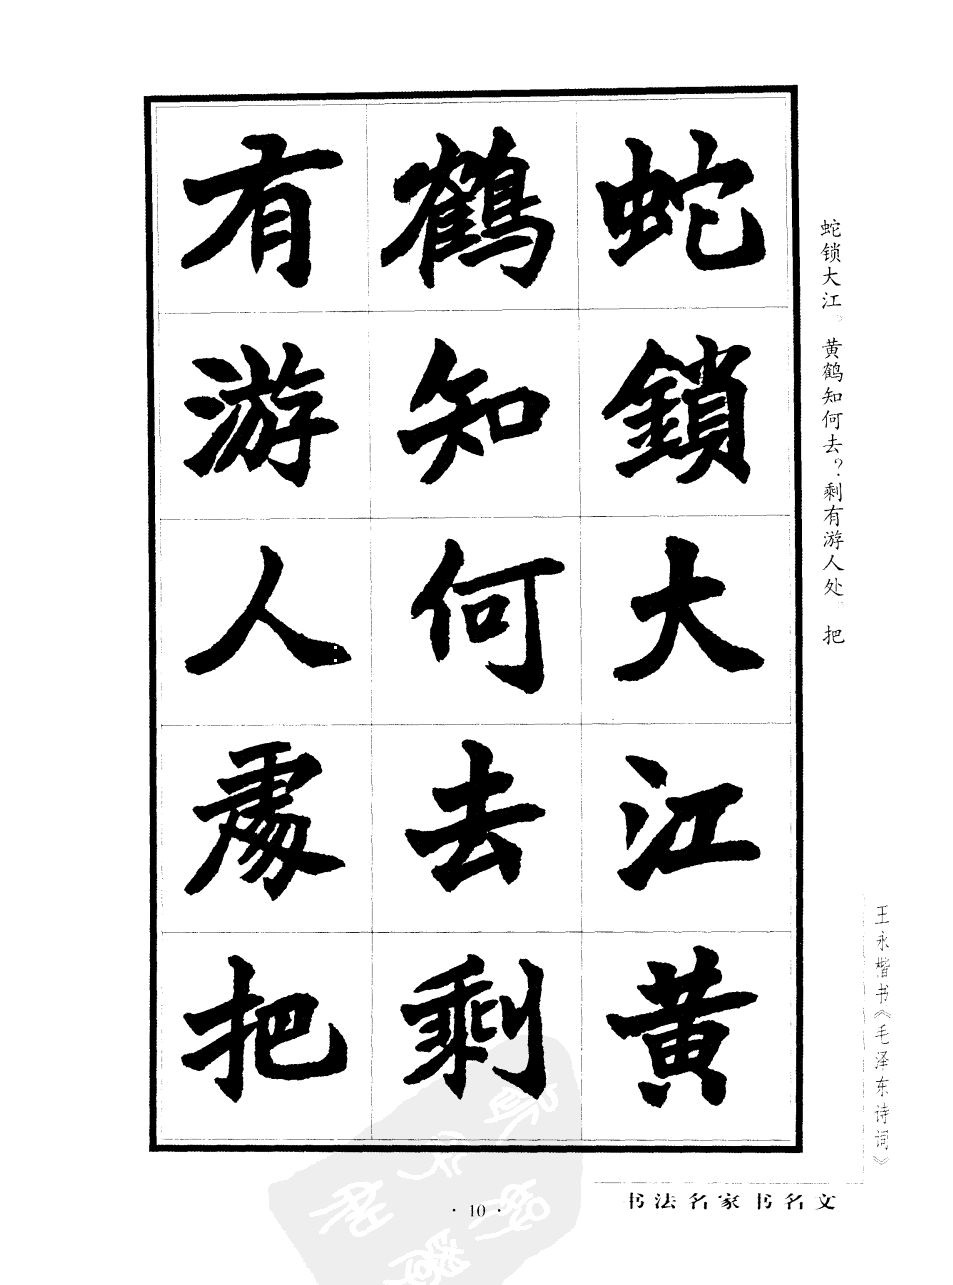 蛇鎖大江黄
鶴知何去剩
有游人處把
蛇锁大江。黄鹤知何去？剩有游人处。把
王永楷书《毛泽东诗词》
书法名家书名文
· 10 ·